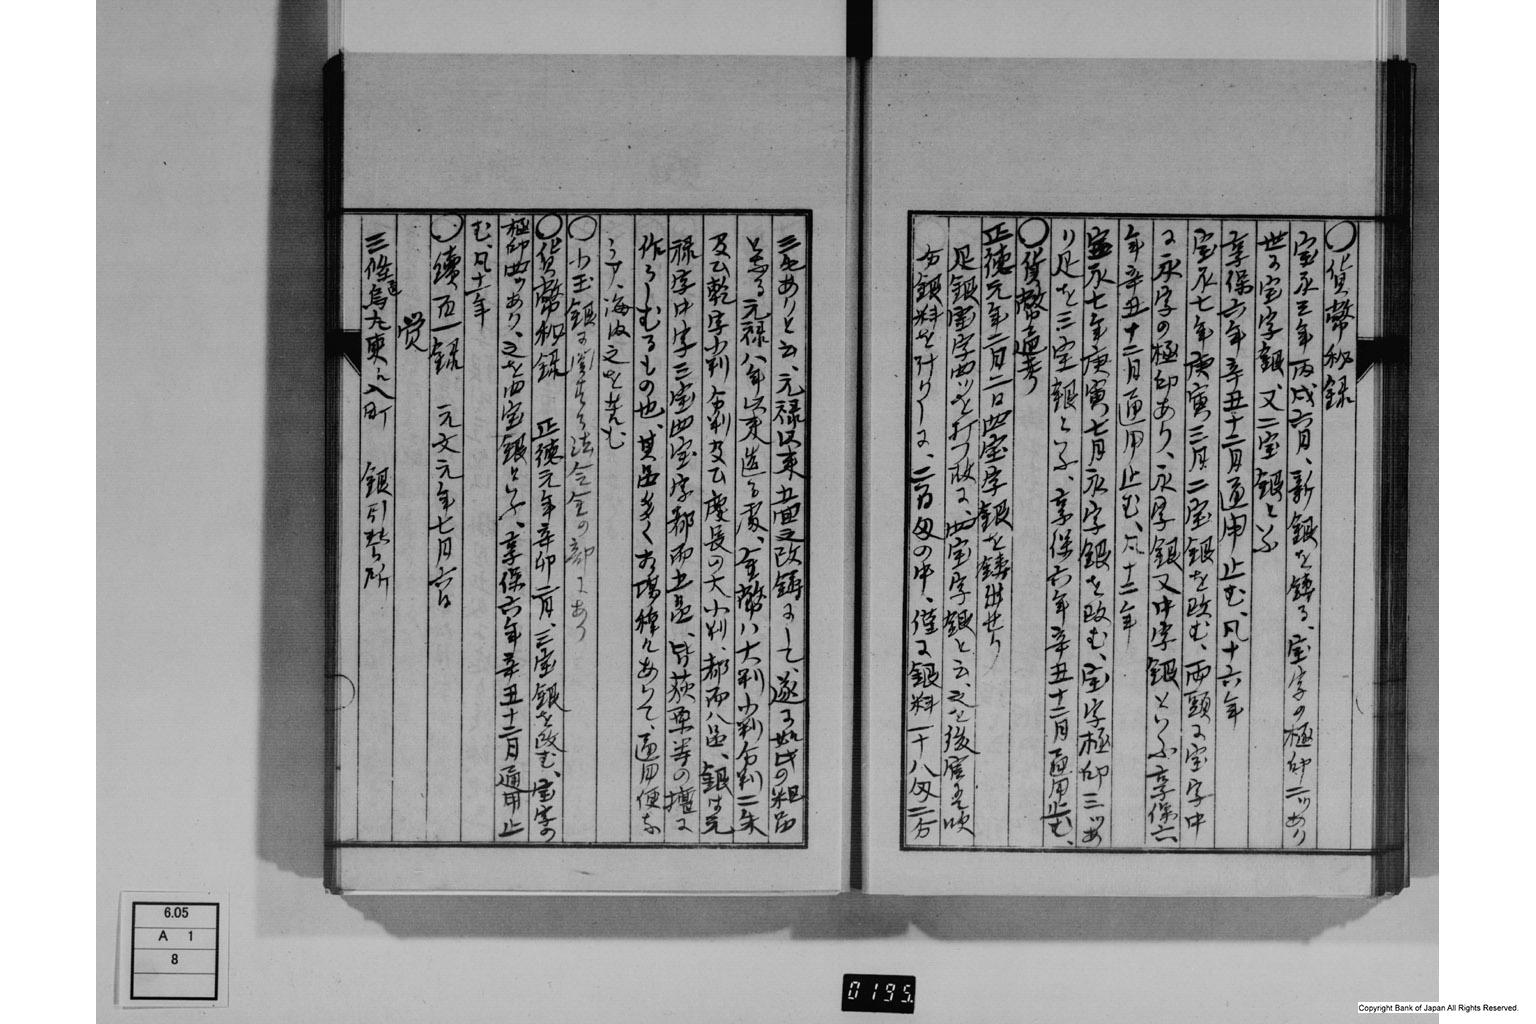 ◯貨幣秘録
宝永三年丙戌六月、新銀を鋳る、宝字の極印二ツあり
世に宝字銀、又二宝銀と云
享保六年辛丑十二月通用止む、凡十六年
宝永七年庚寅三月二宝銀を改む、両頭に宝字中
に永字の極印あり、永字銀又中字銀といふ享保六
年辛丑十二月通用止む、凡十二年
宝永七年庚寅七月永字銀を改む、宝字極印三ツあ
り是を三宝銀といふ、享保六年辛丑十二月通用止む、
◯貨幣通考
正徳元年二月二日四宝字銀を鋳出せり
是銀宝字四ツを打つ故に、四宝字銀と云、之を後
分銀料を計りしに、二百匁の中、僅に銀料一十八匁二分
三毛ありと云、元禄以来五回之改鋳にして、遂に如此の粗品
と為る元禄八年以来造る処、金幣ハ大判小判分判二朱
及ひ乾字小判分判及ひ慶長の大小判、都而八品、銀は元
禄字中字三宝四宝字都而五品、皆荻原等の擅に
作らしむるもの也、其品多くお場種々ありて、通用便な
らす、海内之を苦む
◯小玉銀に関する法令金の部にあり
◯貨幣秘録 正徳元年辛卯二月、三宝銀を改む、宝字の
極印四ツあり、之を四宝銀といふ、享保六年辛丑十二月通用止
む、凡十一年
◯續百一録 元文元年七月六日
覚
三條通烏丸東へ入町 銀引替所
6.05
A 1
8
0195.
Copyright Bank of Japan All Rights Reserved.